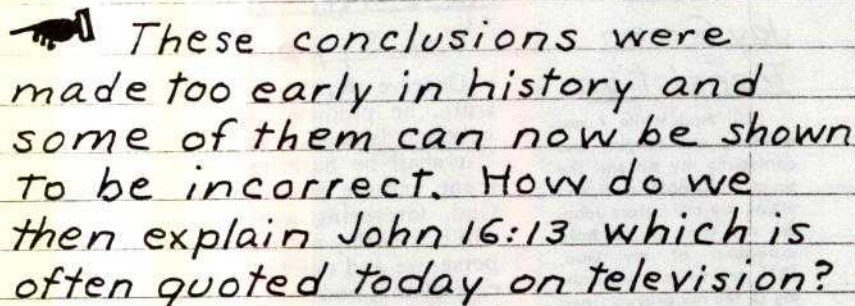 These conclusions were
made too early in history and
some of them can now be shown
to be incorrect. How do we
then explain John 16:13 which is
often quoted today on television?